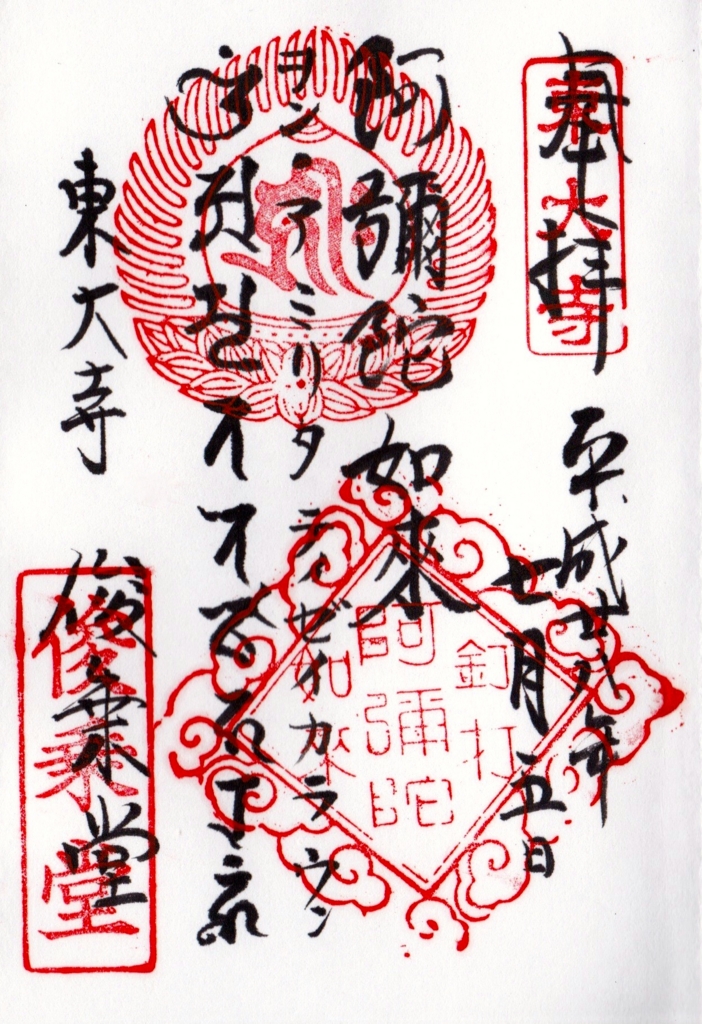 奉拝
東大寺
平成廿八年
七月五日
阿彌陀如來
釘打
阿彌陀
如來
ヲン・アミリタ テイゼイカラウン
東大寺
俊乗堂
俊乗堂